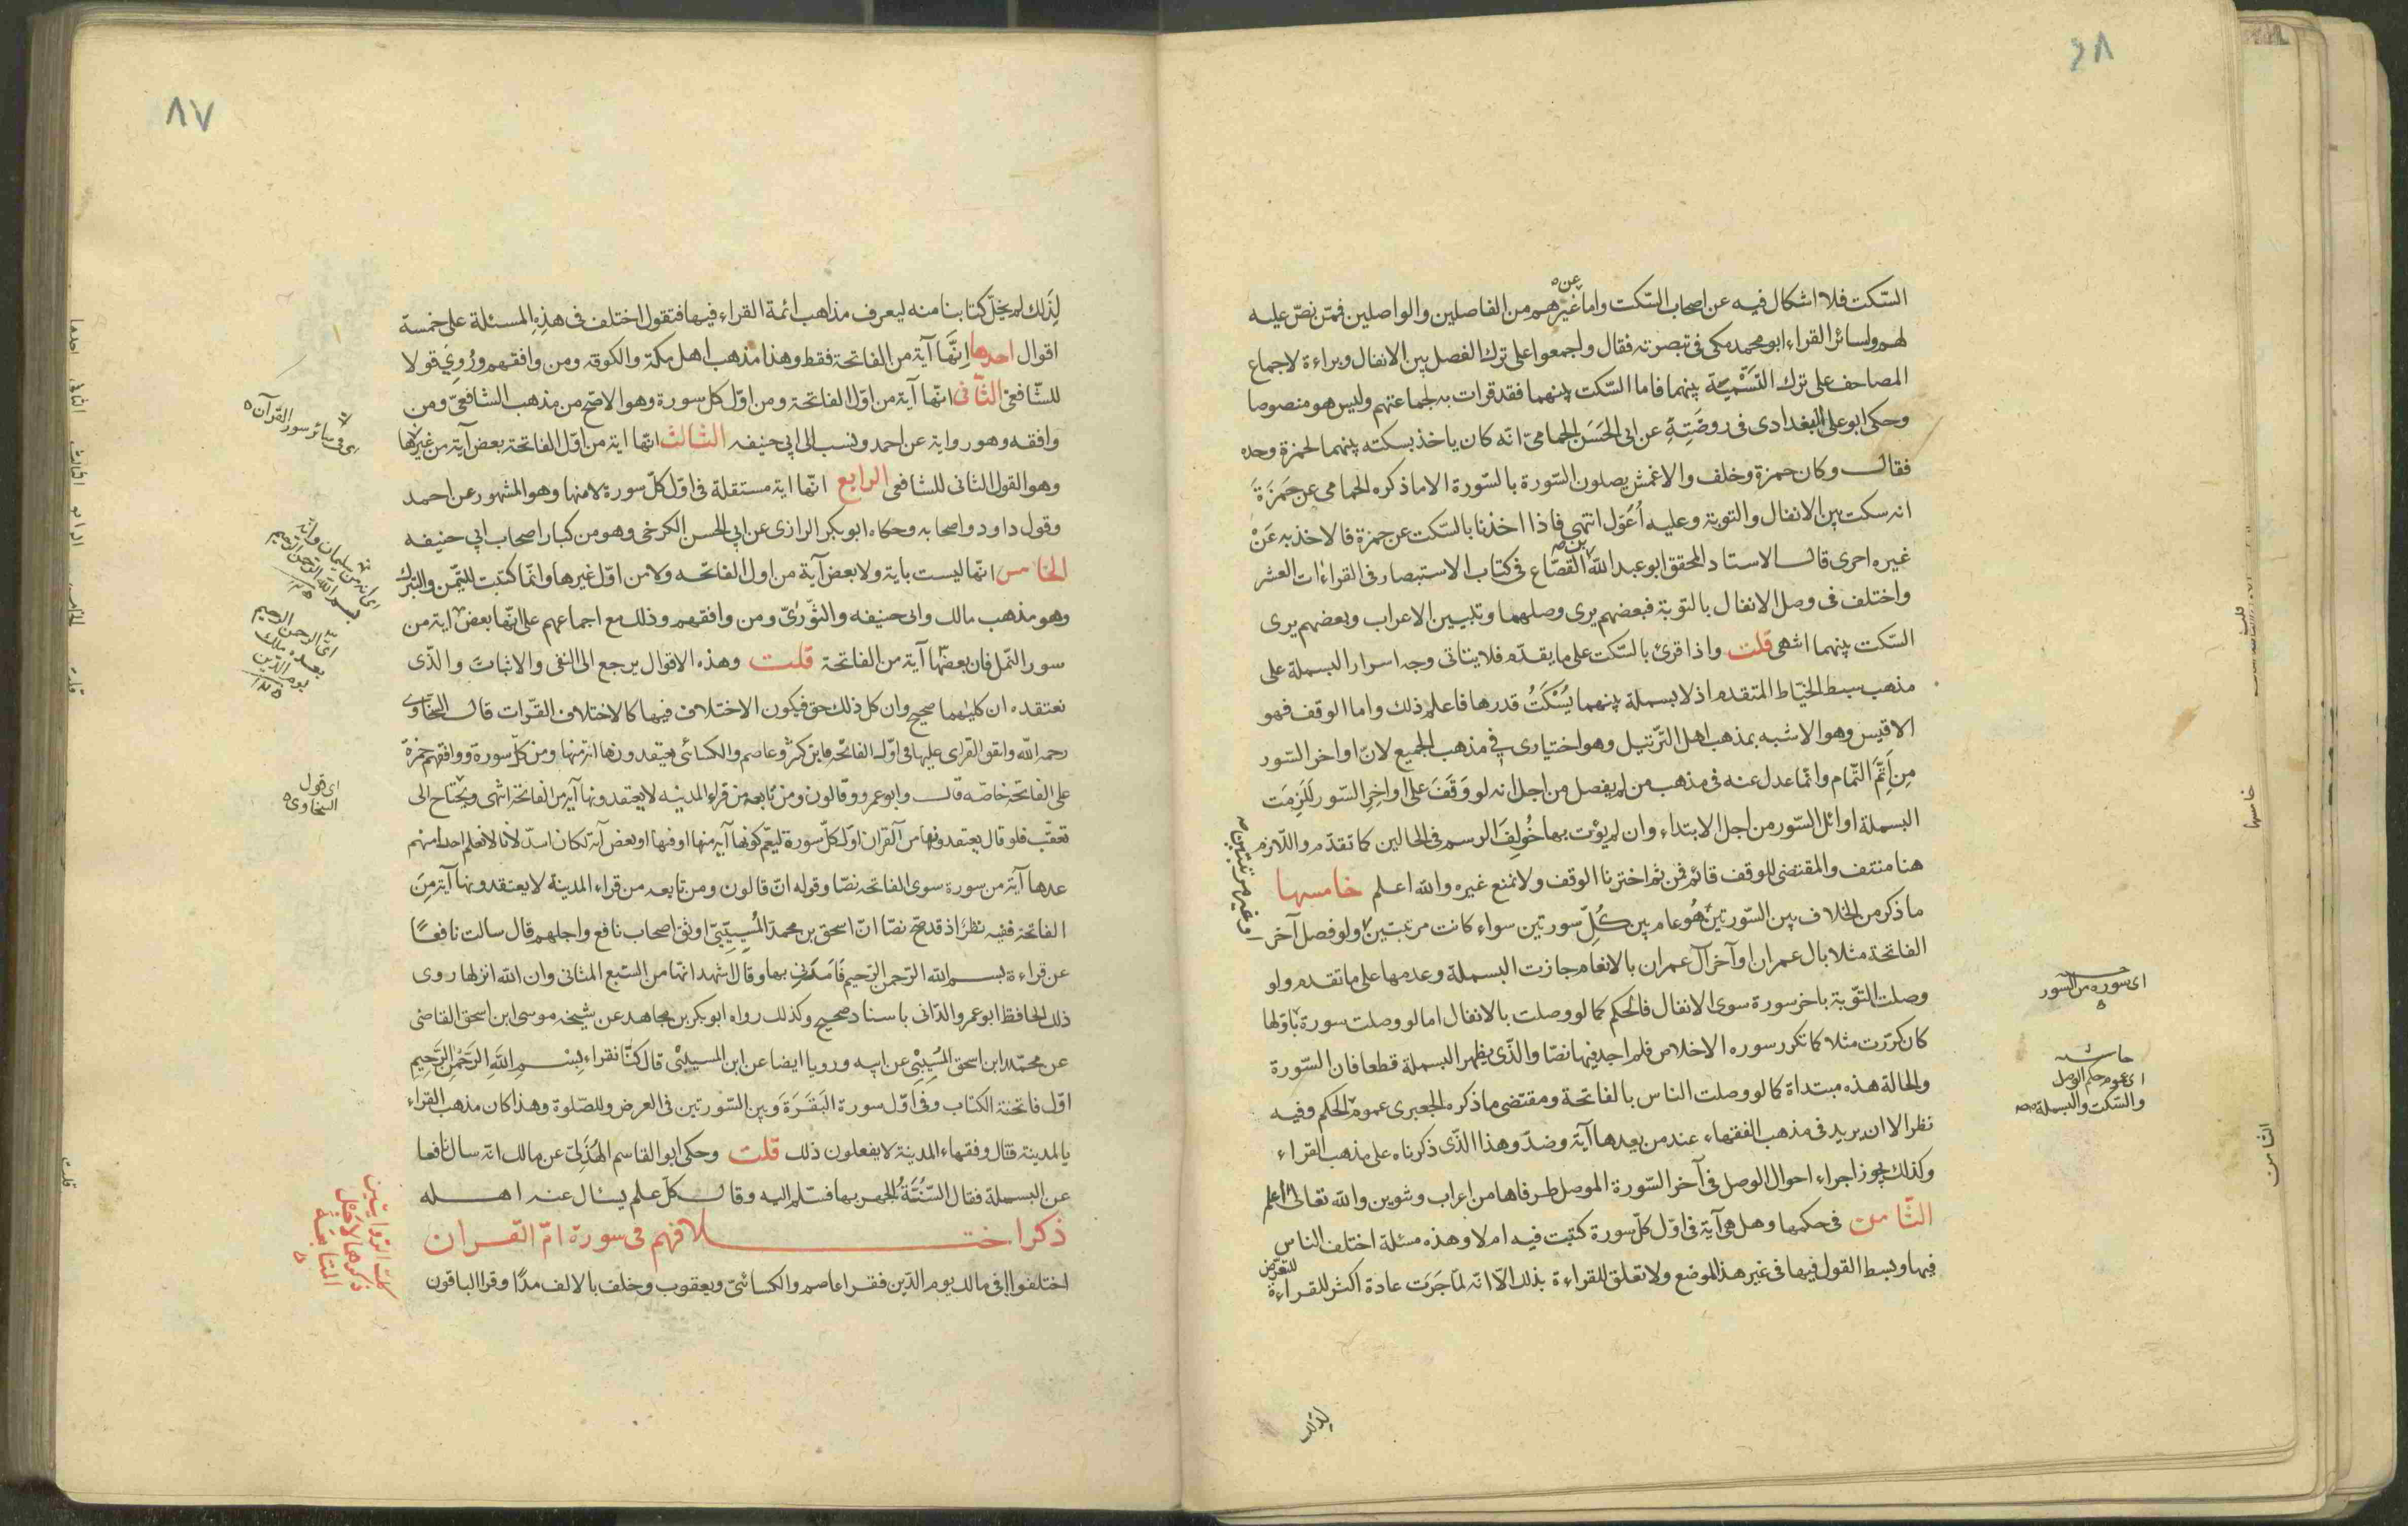 ٨٦
السّكت فلا اشكال فيه عن اصحاب السّكت واما غيرهم من الفاصلين والواصلين فمّن نصّ عليه
عن
لهم ولسائر القراء ابو محمد مكى فى تبصرته فقال واجمعوا على ترك الفصل بين الانفال وبراءة لاجماع
المصاحف على ترك التسمية بينهما فاما السّكت بينهما فقد قرات به لجماعتهم وليس هو منصوصا
وحكى ابو على البغدادى فى روضته عن ابى الحسن الحمامىّ انّه كان ياخذ بسكته بينهما لحمزة وحده
فقال وكان حمزة وخلف والاعمش يصلون السّورة بالسّورة الا ما ذكره الحمامى عن حمزة
انه سكت بين الانفال والتوبة وعليه اُعَوّل انتهى فاذا اخذنا بالسّكت عن حمزة فالاخذ به عن
غيره احرى قال الاستاد المحقق ابو عبد الله بن القصّاع فى كتاب الاستبصار فى القراءات العشر
واختلف فى وصل الانفال بالتوبة فبعضهم يرى وصلهما وتبيين الاعراب وبعضهم يرى
السّكت بينهما انتهى قلت واذا قرئ بالسّكت على ما يقدّم فلا يتاتى وجه اسرار البسملة على
مذهب سبط الخيّاط المتقدم اذ لا بسملة بينهما يُسْكَتُ قدرها فاعلم ذلك واما الوقف فهو
الاقيس وهو الاشبه بمذهب اهل التّرتيل وهو اختيارى فى مذهب الجميع لانّ اواخر السّور
مِن اَتَمَّ التّمام وانّما عدل عنه فى مذهب من لم يفصل من اجل انه لو وَقَفَ على اواخِرِ السّور لَلَزِمَت
البسملة اوائل السّور من اجل الابتداء وان لم يؤت بها خُولِفَ الرسم فى الحالين كما تقدّم واللّازم
هنا منتف والمقتضى للوقف قائم فمن ثم اخترنا الوقف ولا نمنع غيره والله اعلم خامسها
ما ذكر من الخلاف بين السّورتين هُو عام بين كُلّ سورتين سواء كانت مرتبتين ولو فصل آخر
او غير مرتبتين
الفاتحة مثلا بال عمران او آخر آل عمران بالانعام جازت البسملة وعدمها على ما تقدم ولو
وصلت التّوبة باخر سورة سوى الانفال فالحكم كما لو وصلت بالانفال اما لو وصلت سورة باوّلها
اى سوره من السور
كان كرّرت مثلا كما تكرر سوره الاخلاص فلم اجد فيها نصّا والّذى يظهر البسملة قطعا فان السّورة
والحالة هذه مبتداة كما لو وصلت الناس بالفاتحة ومقتضى ما ذكره الجعبرى عموم الحكم وفيه
اى عموم حكم الوصل
والسّكت والبسملة
نظر الا ان يريد فى مذهب الفقهاء عند من يعدها آية وضدّ وهذا الّذى ذكرناه على مذهب القراء
وكذلك يجوز اجراء احوال الوصل فى آخر السّورة الموصل طرفاها من اعراب وتنوين والله تعالى اعلم
الثّامن فى حكمها وهل هى آية فى اوّل كلّ سورة كتبت فيه ام لا وهذه مسئلة اختلف الناس
فيها وبسط القول فيها فى غير هذا الموضع ولا تعلق للقراءة بذلك الّا انّه لمّا جَرَت عادة اكثر للقراءة
للتعرّض
لذلك
٨٧
لِذَلك لم يخلّ كتابنا منه ليعرف مذاهب ائمة القراء فيها فنقول اختلف فى هذِهِ المسئلة على خمسة
اقوال احدها اِنَّها آية من الفاتحة فقط وهذا مذهب اهل مكة والكوفه ومن وافقهم ورُوِىَ قولا
للشّافعىّ الثّانى انّها آية من اوّل الفاتحة ومن اوّل كل سورة وهو الاصّح من مذهب الشافعىّ ومن
وافقه وهو رواية عن احمد ونسب الى ابى حنيفه الثّالث انّها اية من اوّل الفاتحة بعض آية من غيرها
اى فى سائر سور القرآن
وهو القول الثانى للشافعى الرابع انّها اية مستقلة فى اوّل كلّ سورة لا منها وهو المشهور عن احمد
وقول داود واصحابه وحكاه ابو بكر الرازى عن ابى الحسن الكرخى وهو من كبار اصحاب ابى حنيفه
الخامس انّها ليست باية ولا بعض آية من اول الفاتحه ولا من اوّل غيرها وانّما كتبت للتّيمّن والتبرك
وهو مذهب مالك وابى حنيفه والثّورىّ ومن وافقهم وذلك مع اجماعهم على انّها بعض اية من
اى انه من سليمان وانّه
بسم الله الرّحمن الرّحيم
سور النّمل فان بعضها آية من الفاتحة قلت وهذه الاقوال يرجع الى النفى والاثبات والّذى
اى الرحمن الرحيم
بعده ملك
يوم الدّين
نعتقده ان كليهما صحيح وان كل ذلك حق فيكون الاختلاف فيها كالاختلاف القرات قال السخّاوى
رحمه الله واتفق القراى عليها فى اوّل الفاتحه فابن كثير وعاصم والكسائى يعتقدونها اية منها ومن كلّ سورة ووافقهم حمزة
على الفاتحة خاصّه قال وابو عمرو وقالون ومن تابعه من قراء المدينه لا يعتقدونها آية من الفاتحة انتهى ويحتاج الى
اى قول
السّخاوى
تعقّب فلو قال يعتقدونها من القران اوّل كلّ سورة ليعمّ كونها آية منها او فيها او بعض آية لكان اسدّ لانّا لا نعلم احدا منهم
عدها آية من سورة سوى الفاتحه نصّا وقوله انّ قالون ومن تابعه من قراء المدينة لا يعتقدونها آية مِنَ
الفاتحة ففيه نظر اذ قد صحّ نصّا انّ اسحق بن محمد المُسيبىّ اوثق اصحاب نافع واجلهم قال سالت نافعًا
عن قراءة بسم الله الرّحمن الرّحيم فَاَمَرَنى بها وقال اشهد انّها من السّبع المثانى وان الله انزلها روى
ذلك الحافظ ابو عمرو الدّانى باسناد صحيح وكذلك رواه ابو بكر بن مجاهد عن شيخه موسى ابن اسحق القاضى
عن محمّد ابن اسحق المُسيِّبِى عن ابيه ورويا ايضا عن ابن المسيبّى قال كنّا نقراء بِسْمِ اللهِ الرَّحْمٰنِ الرَّحِيمِ
اوّل فاتحة الكتاب وفى اوّل سورة البَقَرَة وَبين السّورتين فى العرض وللصّلوة وهذا كان مذهب القراء
بالمدينة قال وفقهاء المدينة لا يفعلون ذلك قلت وحكى ابو القاسم الهُذَلىّ عن مالك انّه سال نافعا
عن البسملة فقال السّنّة الجهر بها فسّلم اليه وقال كلّ علم يسال عنه اهله
ذكر اختلافهم فى سورة امّ القران
اختلفوا فى مالك يوم الدّين فقرا عاصم والكسائىّ ويعقوب وخلف بالالف مدًا وقرا الباقون